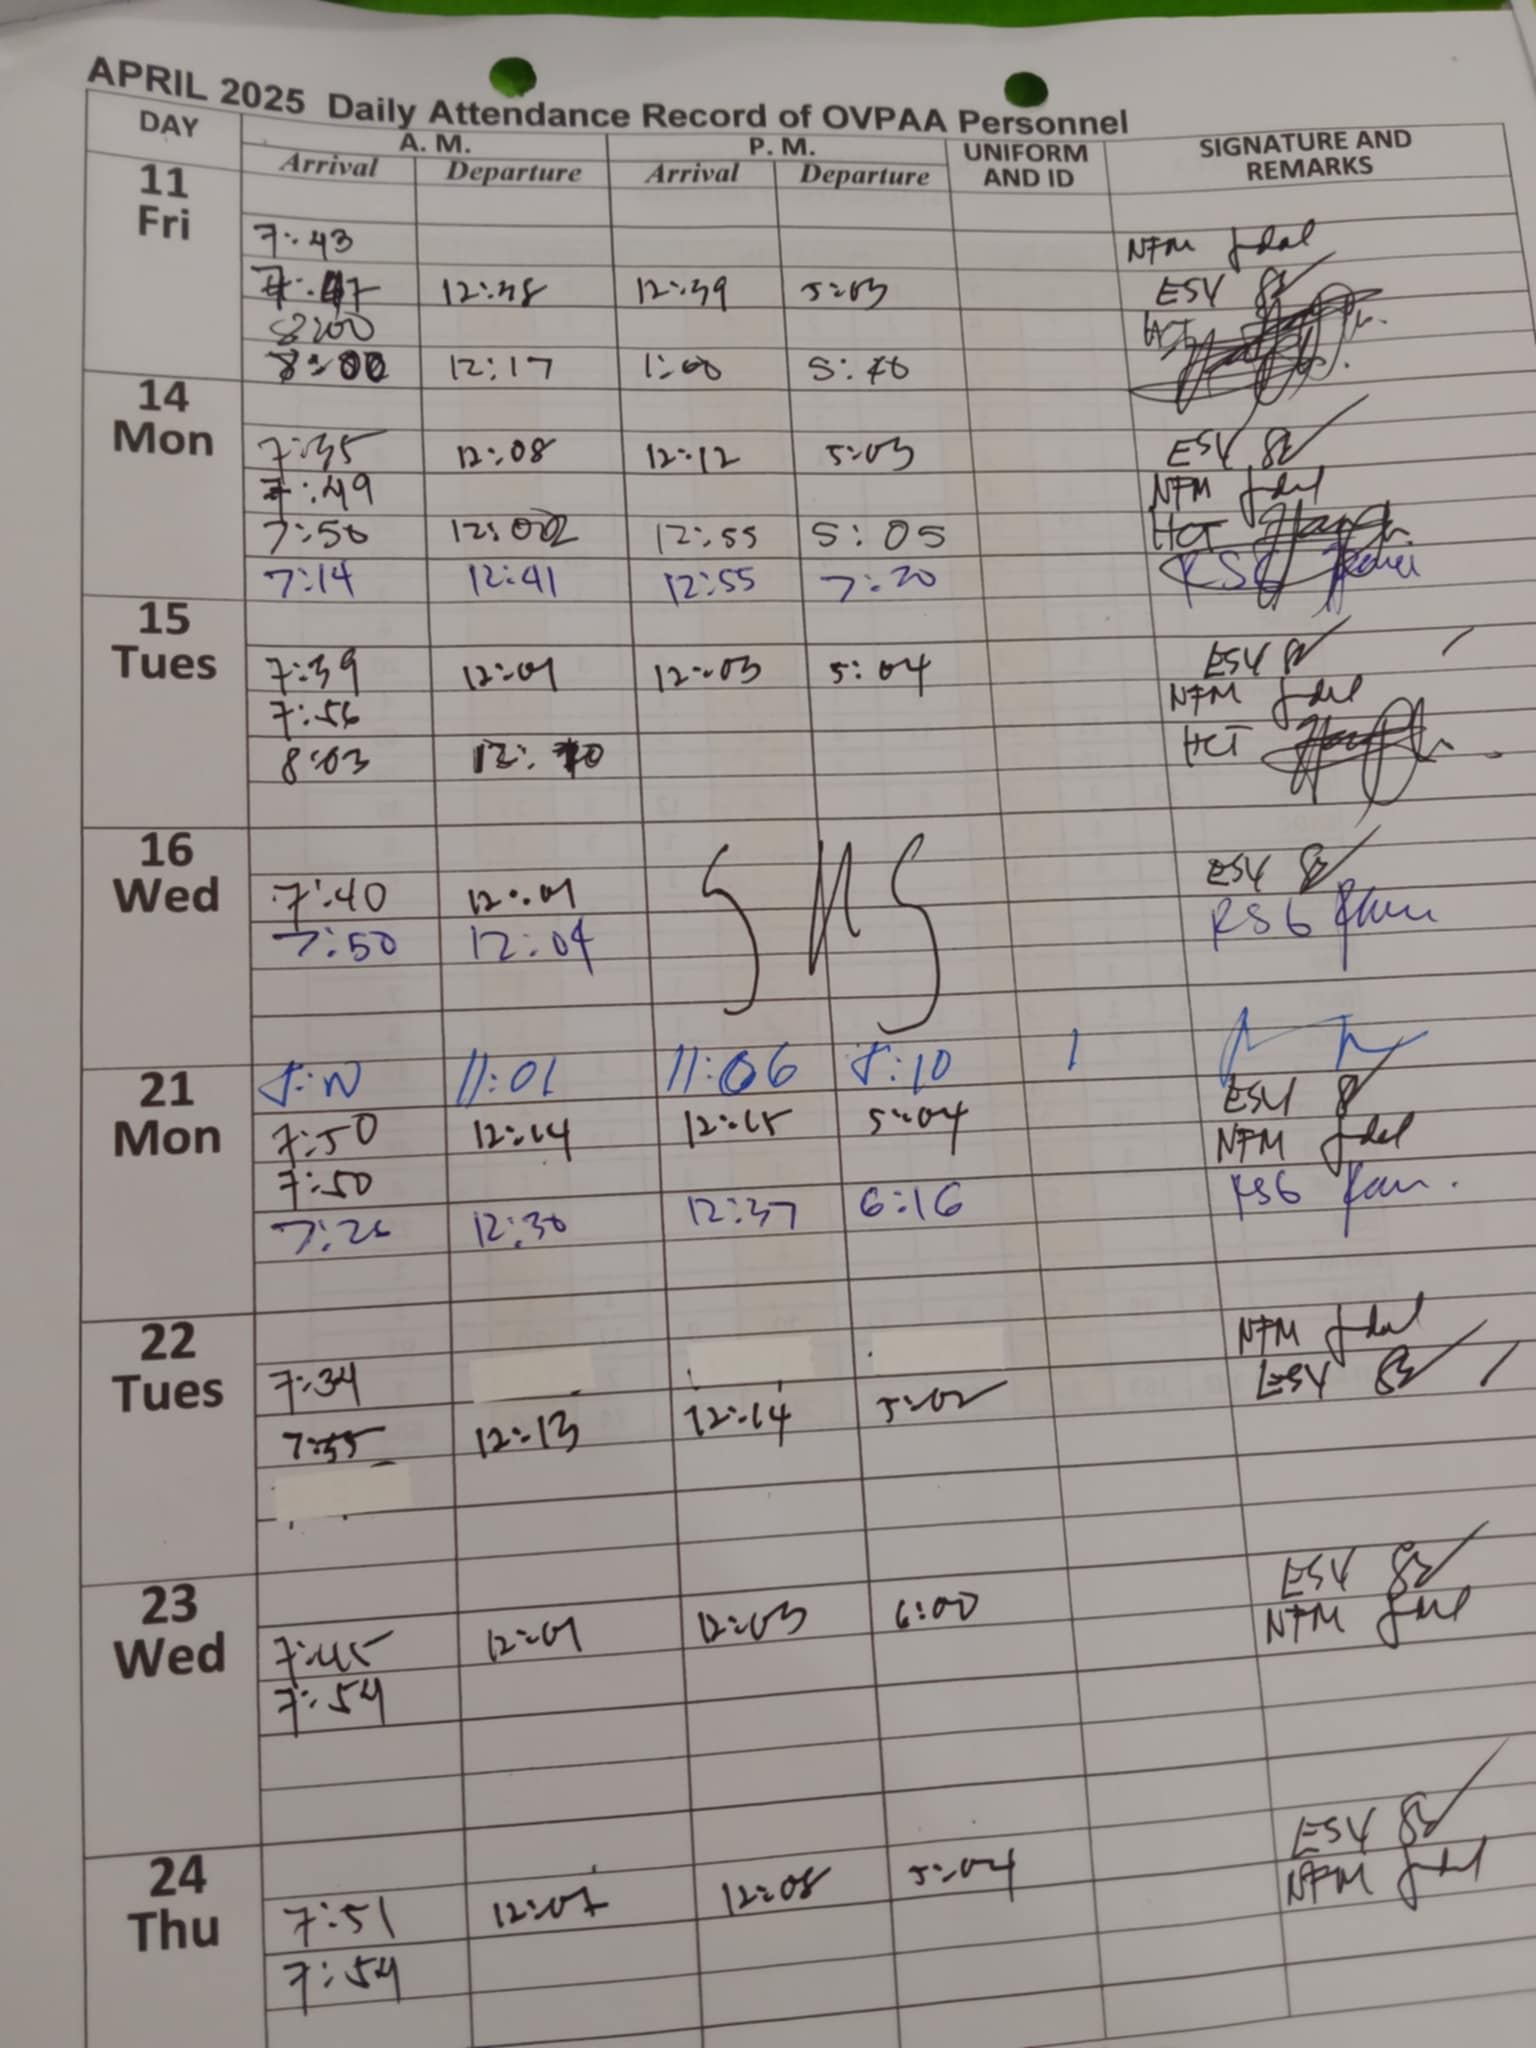 APRIL 2025 Daily Attendance Record of OVPAA Personnel
DAY A. M. P. M. UNIFORM AND ID SIGNATURE AND REMARKS
Arrival Departure Arrival Departure
11 Fri
7:43 NFM
7:47 12:38 12:39 5:03 ESV
8:00 HCT
8:00 12:17 1:00
14 Mon
7:35 12:08 12:12 5:03 ESV
7:49 NFM
7:50 12:02 12:55 5:05 HCT
7:14 12:41 12:55 7:20 RSG
15 Tues
7:39 12:01 12:03 5:04 ESV
7:56 NFM
8:03 12:10 HCT
16 Wed
7:40 12:01 ESV
7:50 12:04 RSG
21 Mon
11:01 11:06 5:10
7:50 12:14 12:15 5:04 ESV
7:50 NFM
12:30 12:37 6:16 RSG
22 Tues
7:34 NFM
7:55 12:13 12:14 5:02 ESV
23 Wed
7:45 12:01 12:03 6:00 ESV
7:54 NFM
24 Thu
7:51 12:07 12:08 5:04 ESV
7:54 NFM